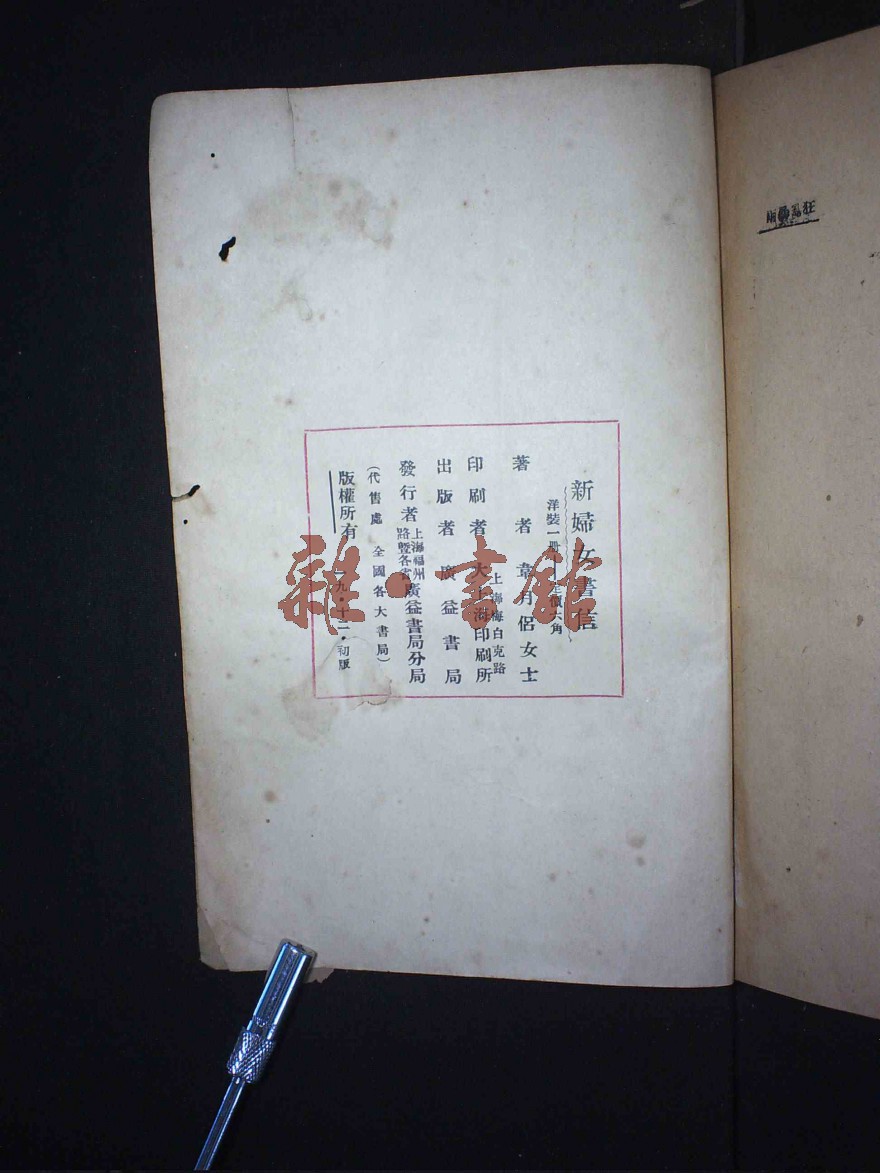 新婦女書信
洋裝一册 定價六角
著者 韋月侶女士
上海梅白克路
印刷者 大上海印刷所
出版者 廣益書局
發行者 上海福州路暨各省 廣益書局分局
(代售處 全國各大書局)
版權所有 九・十二・初版
雜・書館
狂